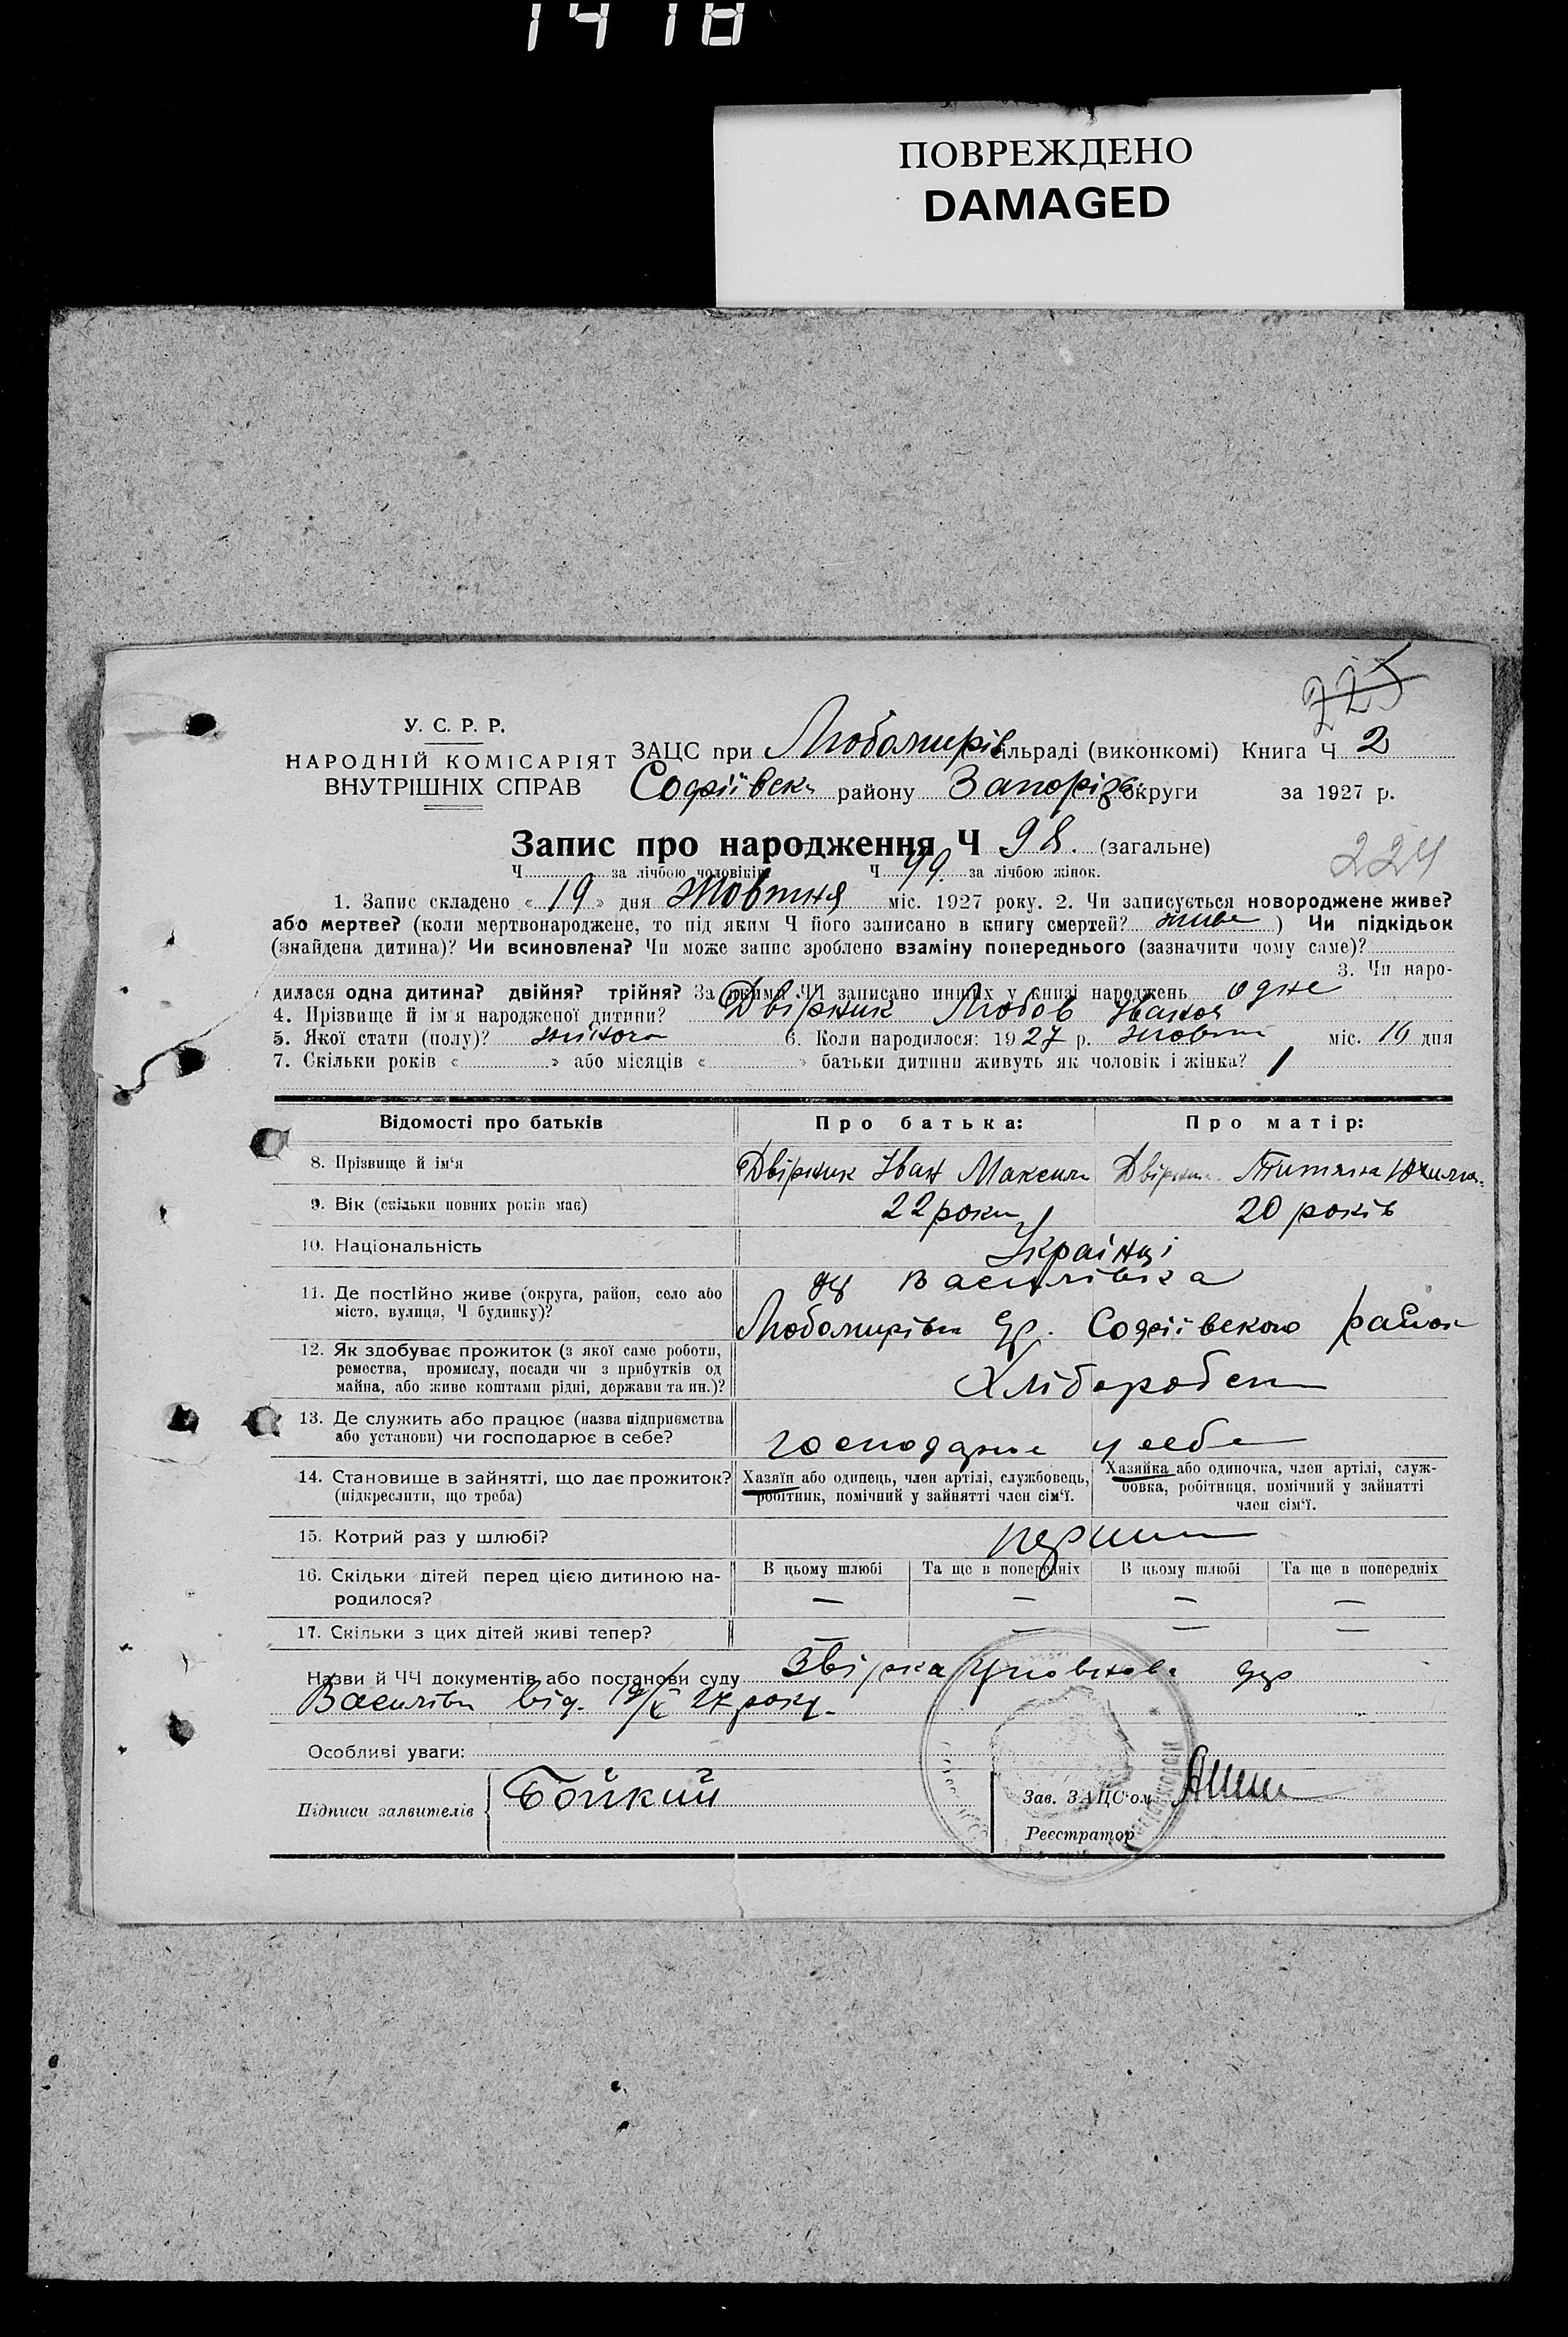 1418
ПОВРЕЖДЕНО
DAMAGED
225
У. С. Р. Р.
НАРОДНІЙ КОМІСАРІЯТ
ВНУТРІШНІХ СПРАВ
ЗАЦС при Любомирів сільраді (виконкомі) Книга Ч 2
Софіївськ району Запорізь округи за 1927 р.
Запис про народження Ч 98. (загальне)
224
Ч за лічбою чоловіків Ч 49. за лічбою жінок.
1. Запис складено « 19 » дня Жовтня міс. 1927 року. 2. Чи записується новороджене живе?
або мертве? (коли мертвонароджене, то під яким Ч його записано в книгу смертей? живе ) Чи підкідьок
(знайдена дитина)? Чи всиновлена? Чи може запис зроблено взаміну попереднього (зазначити чому саме)?
3. Чи наро-
дилася одна дитина? двійня? трійня? За якими ЧЧ записано инших у книзі народжень одне
4. Прізвище й ім'я народженої дитини? Двірник Любов Іванов
5. Якої стати (полу)? жіноча 6. Коли народилося: 1927 р. жовтн міс. 16 дня
7. Скільки років « » або місяців « » батьки дитини живуть як чоловік і жінка? 1
Відомості про батьків Про батька: Про матір:
8. Прізвище й ім'я Двірник Іван Максим Двірник Титяна Юхимов
9. Вік (скільки повних років має) 22 роки 20 років
10. Національність Українці
11. Де постійно живе (округа, район, село або
місто, вулиця, Ч будинку)?
Василівка
Любомирівки Софіївського район
12. Як здобуває прожиток (з якої саме роботи,
ремества, промислу, посади чи з прибутків од
майна, або живе коштами рідні, держави та ин.)?
Хліборобст
13. Де служить або працює (назва підприємства
або установи) чи господарює в себе?
господарює у себе
14. Становище в зайнятті, що дає прожиток?
(підкреслити, що треба)
Хазяїн або одинець, член артілі, службовець,
робітник, помічний у зайнятті член сім'ї.
Хазяйка або одиночка, член артілі, служ-
бовка, робітниця, помічний у зайнятті
член сім'ї.
15. Котрий раз у шлюбі? перший
16. Скільки дітей перед цією дитиною на-
родилося?
В цьому шлюбі Та ще в попередніх В цьому шлюбі Та ще в попередніх
— — — —
17. Скільки з цих дітей живі тепер? — — — —
Назви й ЧЧ документів або постанови суду Звірка
Василівки від. 19/X 27 року.
Особливі уваги:
Підписи заявителів Бойкий
Зав. ЗАЦС'ом
Реєстратор